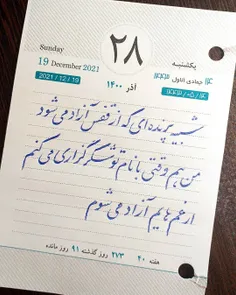 Sunday
19 December 2021
2021 / 12 / 19
۲۸
آذر ۱۴۰۰
یکشنبه
جمادی الاول
شبیه پرنده‌ای که از قفس آزاد می شود
من هم وقتی با نام تو شکرگزاری می کنم
از غم هایم آزاد می شوم
هفته ۴۰ ۲۷۳ روز گذشته ۹۱ روز مانده